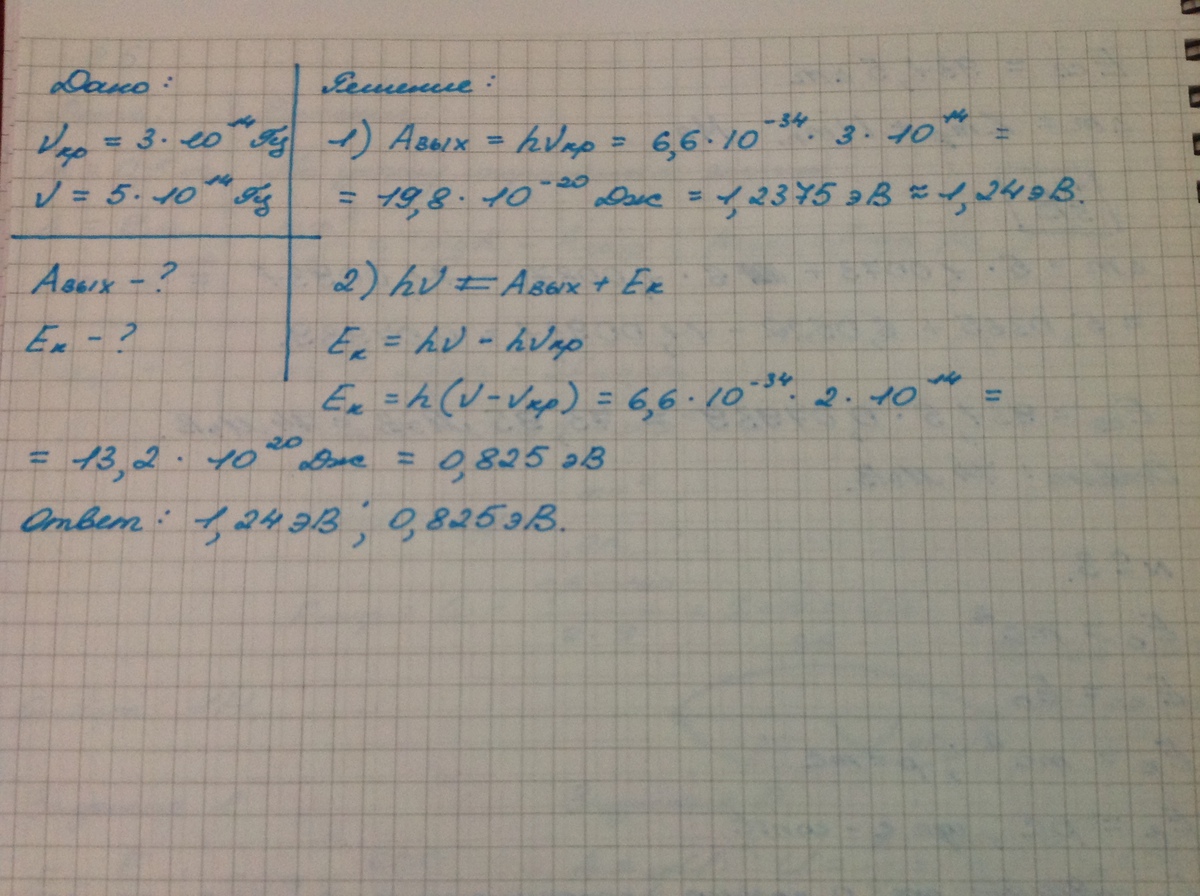 Дано:
νкр = 3·10¹⁴ Гц
ν = 5·10¹⁴ Гц
Aвых - ?
Eк - ?
Решение:
1) Aвых = hνкр = 6,6·10⁻³⁴·3·10¹⁴ =
= 19,8·10⁻²⁰ Дж = 1,2375 эВ ≈ 1,24 эВ.
2) hν = Aвых + Eк
Eк = hν - hνкр
Eк = h(ν - νкр) = 6,6·10⁻³⁴·2·10¹⁴ =
= 13,2·10²⁰ Дж = 0,825 эВ
Ответ: 1,24 эВ; 0,825 эВ.